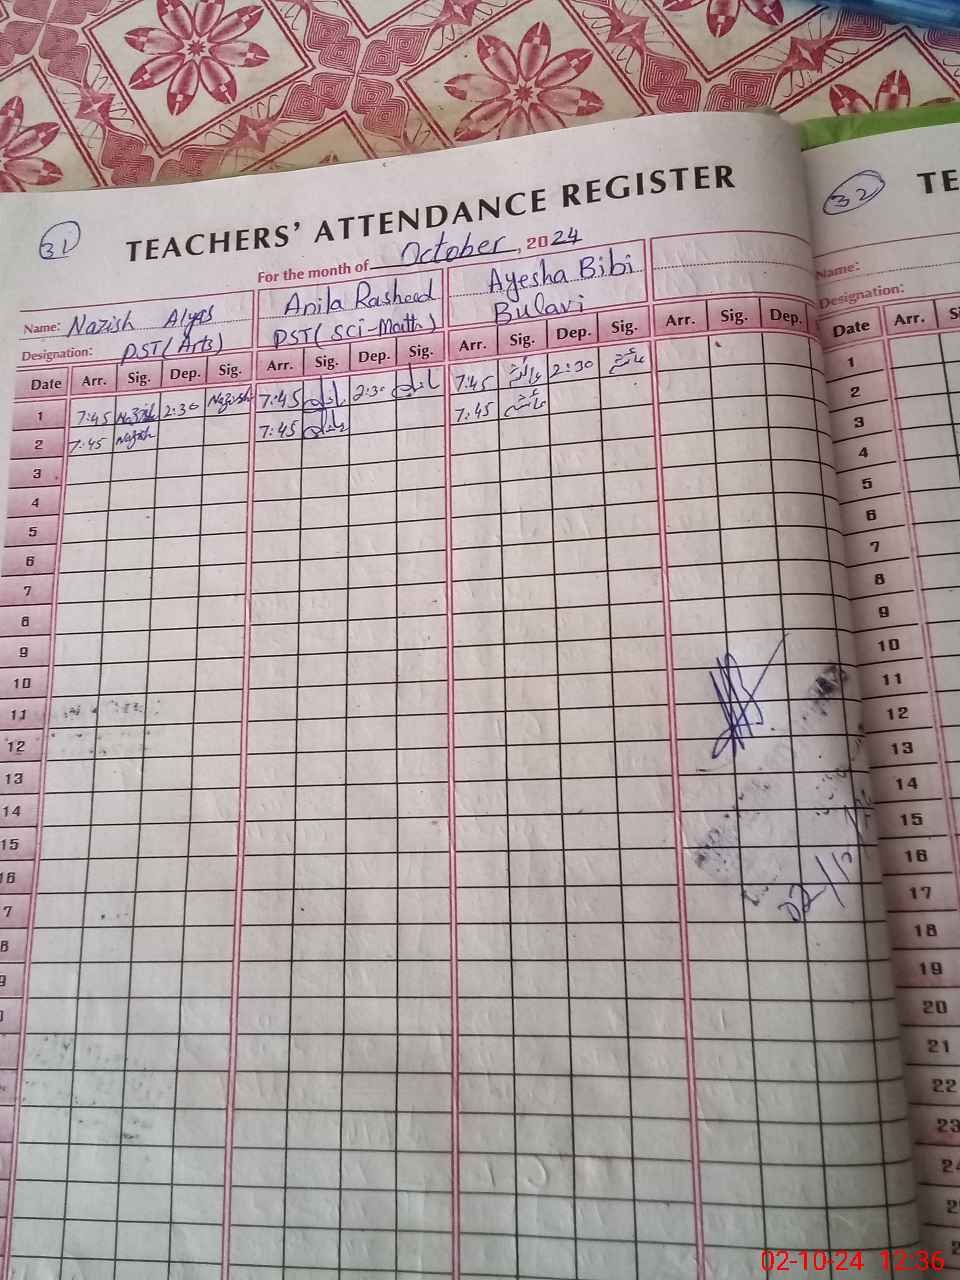 31
TEACHERS' ATTENDANCE REGISTER
For the month of October, 2024
Name: Nazish Alyas
Anila Rasheed
Ayesha Bibi
Designation: PST (Arts)
PST (Sci-Math)
Bulavi
Date Arr. Sig. Dep. Sig. Arr. Sig. Dep. Sig. Arr. Sig. Dep. Sig. Arr. Sig. Dep.
1 7:45 Nazish 2:30 Nazish 7:45 2:30 7:45 عائشہ 2:30 عائشہ
2 7:45 Nazish 7:45 7:45 عائشہ
3
4
5
6
7
8
9
10
11
12
13
14
15
16
7
8
9
02/10
32
TE
Name:
Designation:
Date Arr. S
1
2
3
4
5
6
7
8
9
10
11
12
13
14
15
16
17
18
19
20
21
22
23
24
2
2
02-10-24 12:36